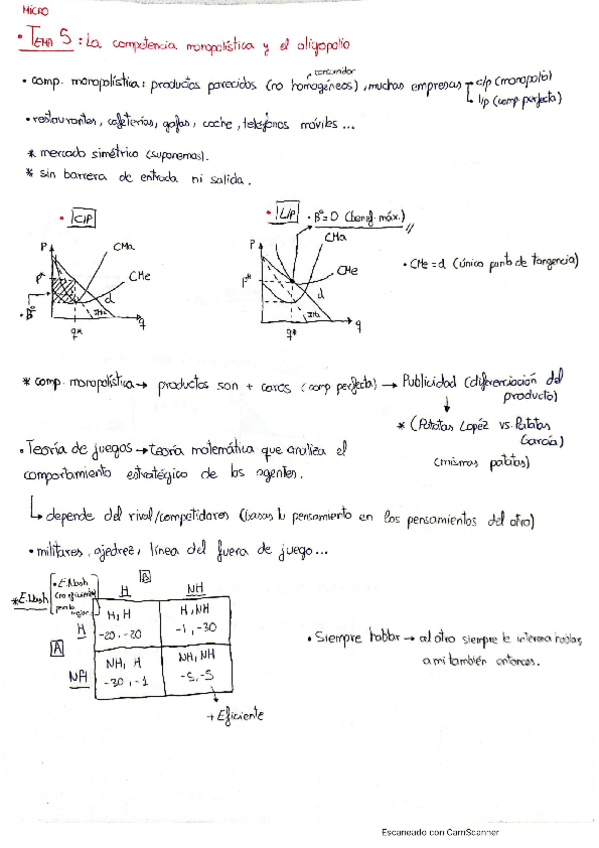 MICRO
• TEMA 5: La competencia monopolística y el oligopolio
consumidor
• comp. monopolística: productos parecidos (no homogéneos), muchas empresas c/p (monopolio)
l/p (comp perfecta)
• restaurantes, cafeterías, gafas, coche, teléfonos móviles...
* mercado simétrico (suponemos).
* sin barrera de entrada ni salida.
• C/P
• L/P • Bº=0 (benef. máx.)
P CMa
CMe
P*
d
• Bº
IMa
q
q*
P CMa
CMe
P*
d
IMa
q
q*
• CMe = d (único punto de tangencia)
* comp. monopolística → productos son + caros (comp perfecta) → Publicidad (diferenciación del
producto)
* (Patatas Lopéz vs. Patatas
García)
(mismas patatas)
• Teoría de juegos → teoría matemática que analiza el
comportamiento estratégico de los agentes.
depende del rival/competidores (basas tu pensamiento en los pensamientos del otro)
• militares, ajedrez, línea del fuera de juego...
B
• E.Nash
(no eficiente)
* E.Nash
H NH
H
H, H H, NH
-20, -20 -1, -30
A
NH
NH, H NH, NH
-30, -1 -5, -5
+ Eficiente
• Siempre hablar → al otro siempre le interesa hablar,
a mi también entonces.
Escaneado con CamScanner